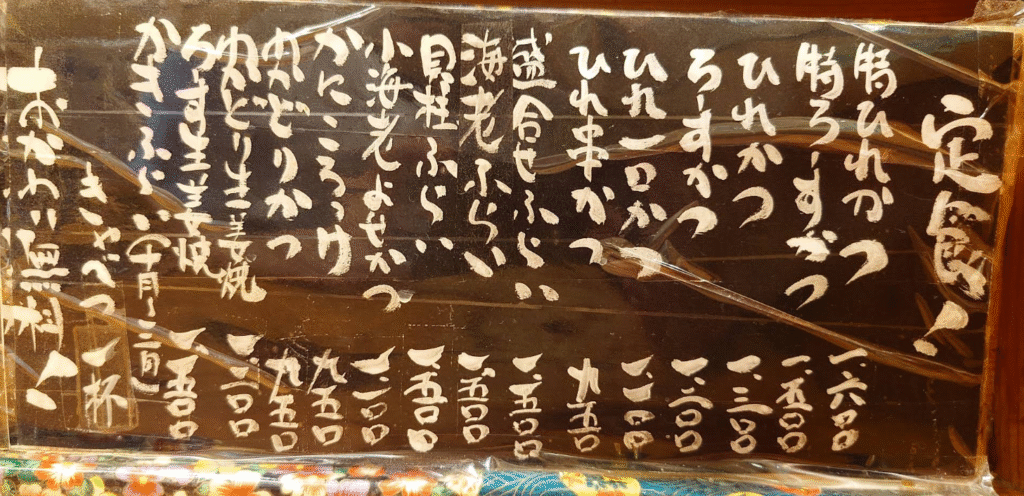 定食!
特ひれかつ 一、六〇〇
特ろーすかつ 一、五〇〇
ひれかつ 一、三〇〇
ろーすかつ 一、二〇〇
ひれ一口かつ 一、一〇〇
ひれ串かつ 九五〇
盛合せふらい 一、五〇〇
海老ふらい 一、五〇〇
貝柱ふらい 一、五〇〇
小海老よせかつ
かにころっけ 九五〇
わかどりかつ 九五〇
わかどり生姜焼
ろーす生姜焼 一、五〇〇
かきふらい(十月〜二月)
きゃべつ 一杯
おかわり無料!